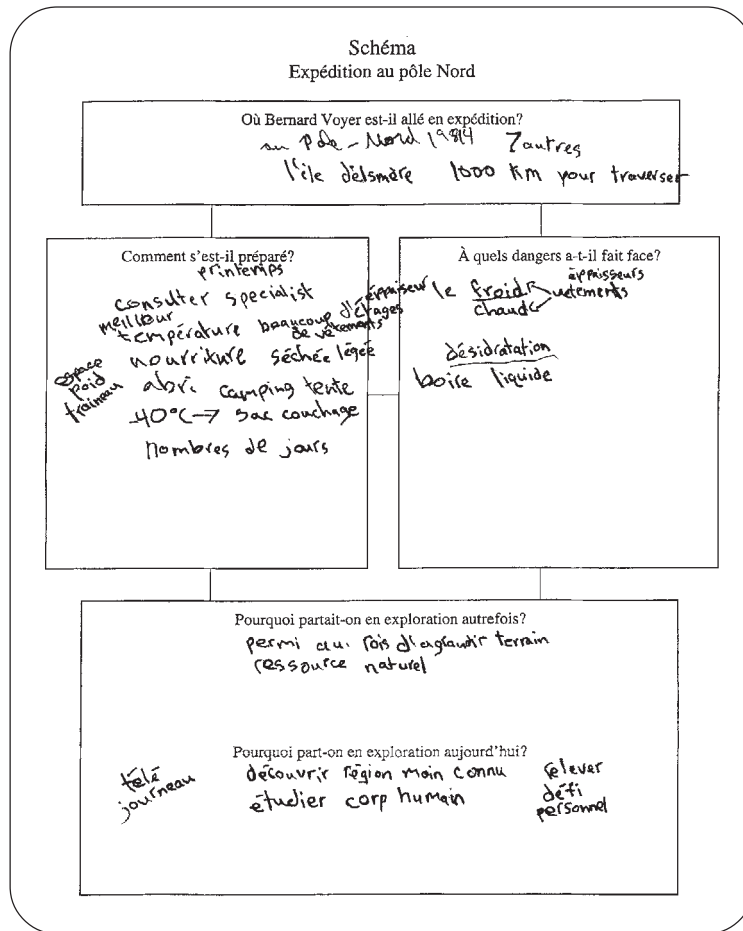 Schéma
Expédition au pôle Nord
Où Bernard Voyer est-il allé en expédition?
au Pole-Nord 1984 7 autres
l'île délsmare 1000 km pour traverser
Comment s'est-il préparé?
printemps
consulter specialist
meilleur température beaucoup d'étages de vêtements éppaiseur
nourriture séchée légée
espace
poid
traineau
abri camping tente
-40°C → sac couchage
nombres de jours
À quels dangers a-t-il fait face?
éppaisseurs
le froid vetements
chaud
désidratation
boire liquide
Pourquoi partait-on en exploration autrefois?
permi aui rois d'agrandir terrain
ressource naturel
Pourquoi part-on en exploration aujourd'hui?
télé
journeau
découvrir région moin connu
étudier corp humain
relever
défi
personnel